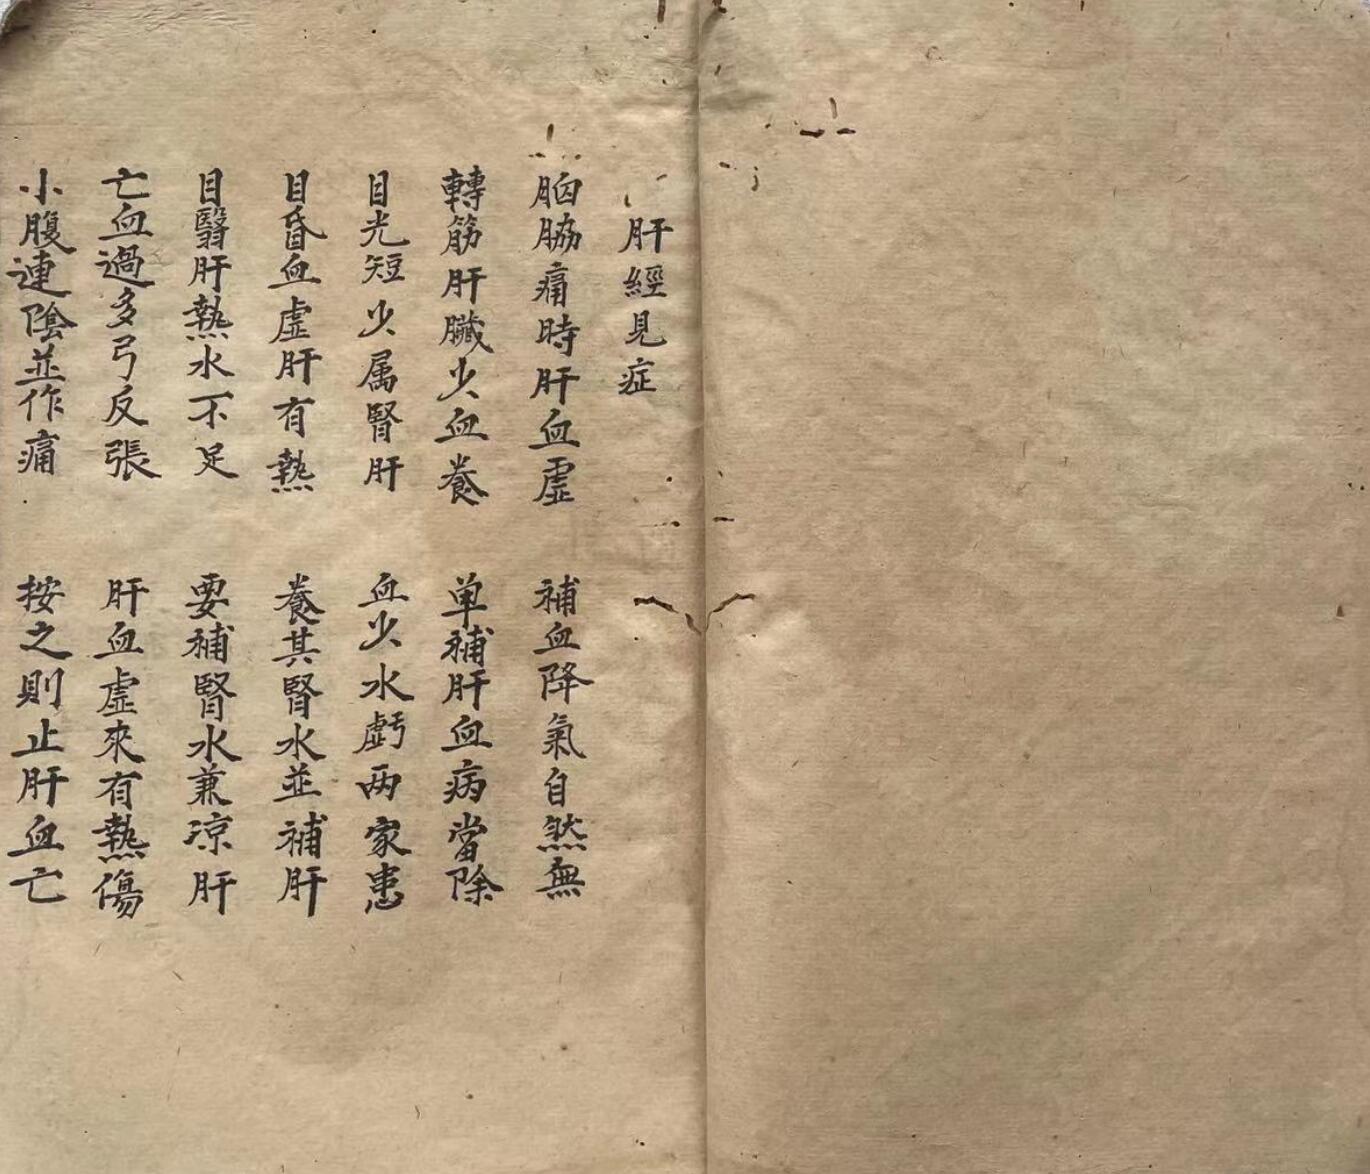 肝經見症
胸脇痛時肝血虛 補血降氣自然無
轉筋肝臟少血養 单補肝血病當除
目光短少属腎肝 血少水虧两家患
目昏血虛肝有熱 養其腎水並補肝
目翳肝熱水不足 要補腎水兼凉肝
亡血過多弓反張 肝血虛來有熱傷
小腹連陰並作痛 按之則止肝血亡